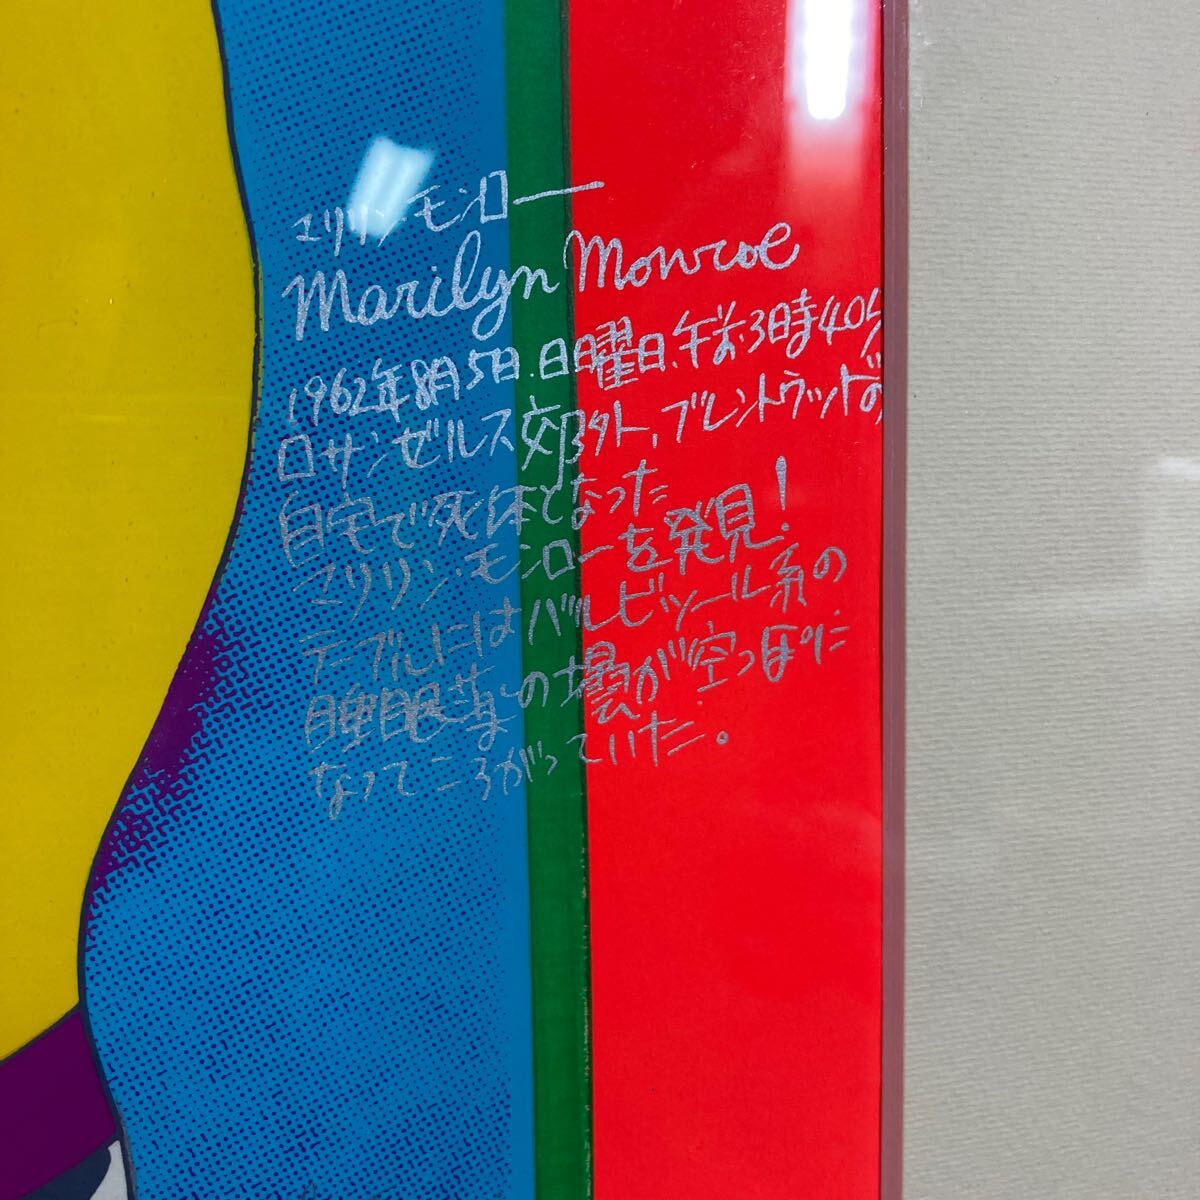 マリリン・モンロー
Marilyn Monroe
1962年8月5日.日曜日.午前.3時40分
ロサンゼルス郊外、ブレントウッドの
自宅で死体となった
マリリン・モンローを発見!
テーブルにはバルビツール系の
睡眠薬の壜が空っぽに
なってころがっていた。